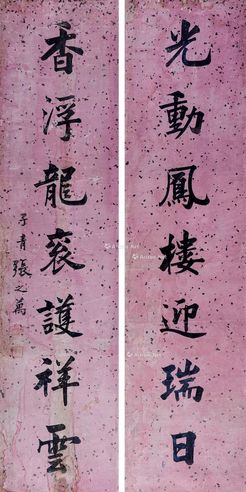 光動鳳樓迎瑞日
香浮龍衮護祥雲
子青張之萬